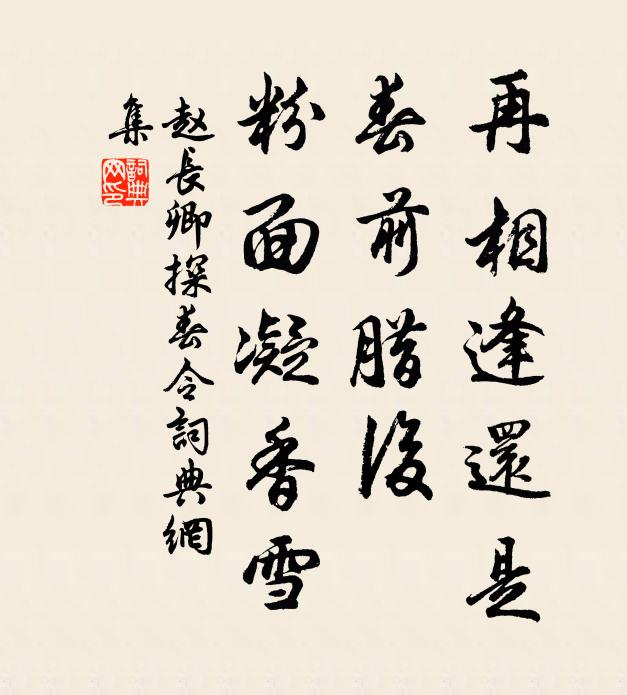 再相逢還是
春前腊後
粉面凝香雪
赵長卿探春令詞典網
集
詞典
网印